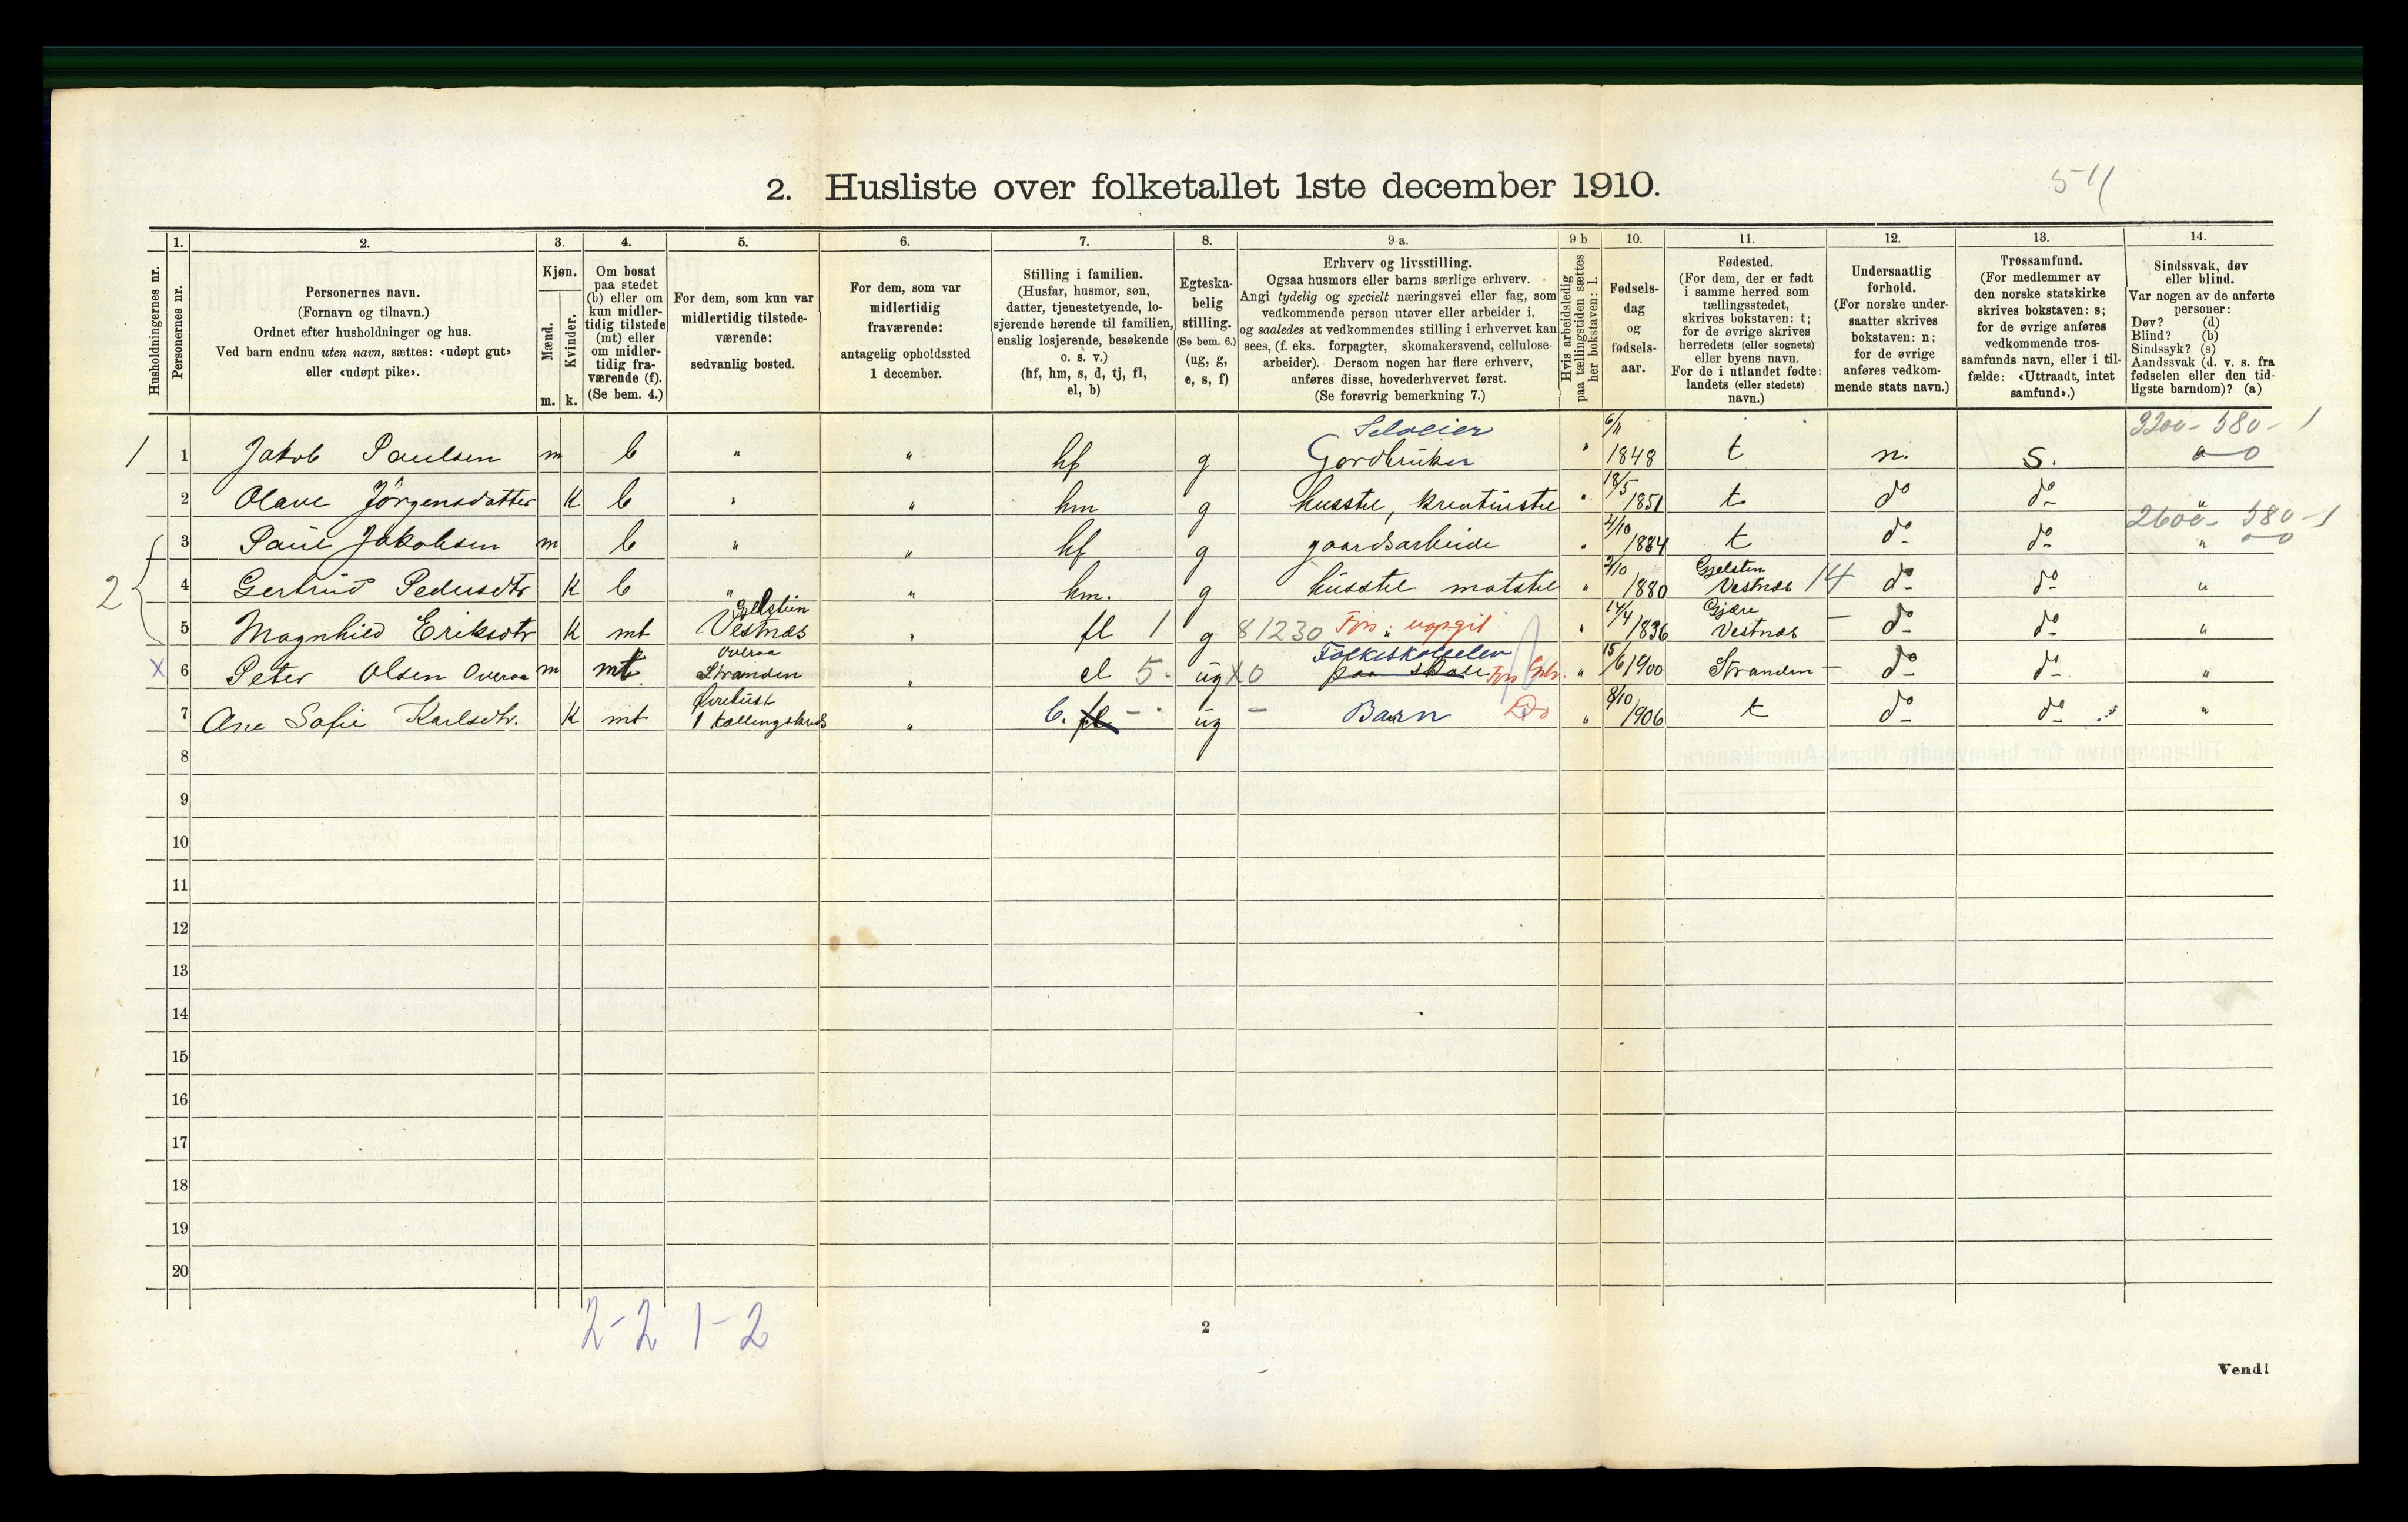 54
2. Husliste over folketallet 1ste december 1910.
1. 2. 3. 4. 5. 6. 7. 8. 9 a. 9 b 10. 11. 12. 13. 14.
Husholdningernes nr.
Personernes nr.
Personernes navn.
(Fornavn og tilnavn.)
Ordnet efter husholdninger og hus.
Ved barn endnu uten navn, sættes: «udøpt gut»
eller «udøpt pike».
Kjøn.
Mænd.
Kvinder.
m. k.
Om bosat
paa stedet
(b) eller om
kun midler-
tidig tilstede
(mt) eller
om midler-
tidig fra-
værende (f).
(Se bem. 4.)
For dem, som kun var
midlertidig tilstede-
værende:
sedvanlig bosted.
For dem, som var
midlertidig
fraværende:
antagelig opholdssted
1 december.
Stilling i familien.
(Husfar, husmor, søn,
datter, tjenestetyende, lo-
sjerende hørende til familien,
enslig losjerende, besøkende
o. s. v.)
(hf, hm, s, d, tj, fl,
el, b)
Egteska-
belig
stilling.
(Se bem. 6.)
(ug, g,
e, s, f)
Erhverv og livsstilling.
Ogsaa husmors eller barns særlige erhverv.
Angi tydelig og specielt næringsvei eller fag, som
vedkommende person utøver eller arbeider i,
og saaledes at vedkommendes stilling i erhvervet kan
sees, (f. eks. forpagter, skomakersvend, cellulose-
arbeider). Dersom nogen har flere erhverv,
anføres disse, hovederhvervet først.
(Se forøvrig bemerkning 7.)
Hvis arbeidsledig
paa tællingstiden sættes
her bokstaven: l.
Fødsels-
dag
og
fødsels-
aar.
Fødested.
(For dem, der er født
i samme herred som
tællingsstedet,
skrives bokstaven: t;
for de øvrige skrives
herredets (eller sognets)
eller byens navn.
For de i utlandet fødte:
landets (eller stedets)
navn.)
Undersaatlig
forhold.
(For norske under-
saatter skrives
bokstaven: n;
for de øvrige
anføres vedkom-
mende stats navn.)
Trossamfund.
(For medlemmer av
den norske statskirke
skrives bokstaven: s;
for de øvrige anføres
vedkommende tros-
samfunds navn, eller i til-
fælde: «Uttraadt, intet
samfund».)
Sindssvak, døv
eller blind.
Var nogen av de anførte
personer:
Døv? (d)
Blind? (b)
Sindssyk? (s)
Aandssvak (d. v. s. fra
fødselen eller den tid-
ligste barndom)? (a)
Selveier 6/11 3200 - 580 - 1
1 1 Jakob Paulsen m b " " hf g Gardbruker " 1848 t n. s. 0
2 Olave Jörgensdatter K b " " hm g husstel, kreaturstel " 18/5 1851 t do do "
2600 - 580 - 1
3 Paul Jakobsen m b " " hf g gaardsarbeide " 4/10 1884 t do do " 0
Gjelsten
2 4 Gertrud Pedersdtr K b " " hm. g husstel matstel " 2/10 1880 Vestnæs 14 do do "
Gjelstein Gjære
5 Magnhild Eriksdtr K mt Vestnæs " fl 1 g 81230 Fors. uopgit " 14/4 1836 Vestnæs - do do "
Overaa Folkeskoleelev
X 6 Peter Olsen Overaa m mt Stranden " el 5 ug X0 paa skole " 15/6 1900 Stranden - do do "
7 Ane Sofie Karlsdtr. K mt 1 tællingskreds " b. fl - ug - Barn Do " 8/10 1906 t do do "
8
9
10
11
12
13
14
15
16
17
18
19
20
2-2 1-2
2
Vend!